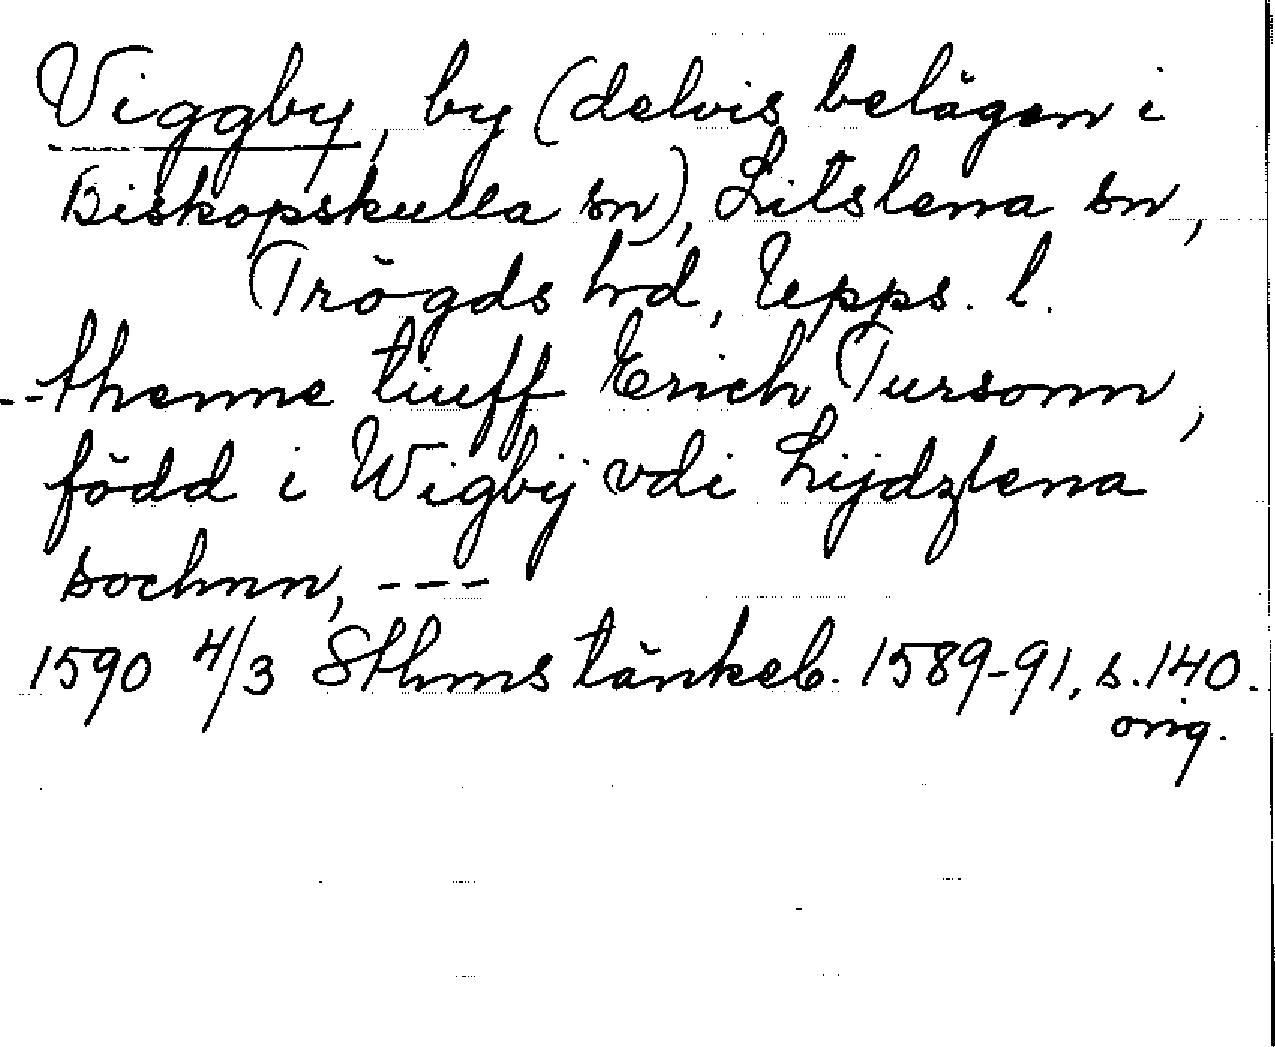 Viggby, by (delvis belägen i
Biskopskulla sn), Litslena sn,
Trögds hrd, Upps. l.
--thenne tiuff Erich Tursonn,
född i Wigbÿ vdi Lijdzlena
sochnn, ---
1590 4/3 Sthms tänkeb. 1589-91, s. 140.
orig.